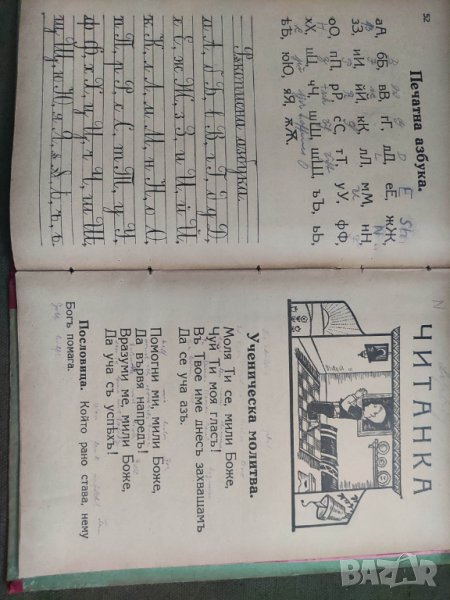 52
Печатна азбука.
аА, бБ, вВ, гГ, дД, еЕ, жЖ,
зЗ, иИ, йЙ, кК, лЛ, мМ, нН,
оО, пП, рР, сС, тТ, уУ, фФ,
хХ, цЦ, чЧ, шШ, щЩ, ъЪ, ьЬ,
ѣѢ, юЮ, яЯ, ѫѪ.
Ръкописна азбука.
а А, б Б, в В, г Г, д Д,
е Е, ж Ж, з З, и И, й Й,
к К, л Л, м М, н Н, о О,
п П, р Р, с С, т Т, у У,
ф Ф, х Х, ц Ц, ч Ч, ш Ш,
щ Щ, ю Ю, я Я,
ЧИТАНКА
Ученическа молитва.
Моля Ти се, мили Боже,
Чуй Ти моя гласъ!
Въ Твое име днесъ захващамъ
Да се уча азъ.
Помогни ми, мили Боже,
Да вървя напредъ!
Вразуми ме, мили Боже,
Да уча съ успѣхъ!
Пословица. Който рано става, нему
Богъ помага.
BAZAR